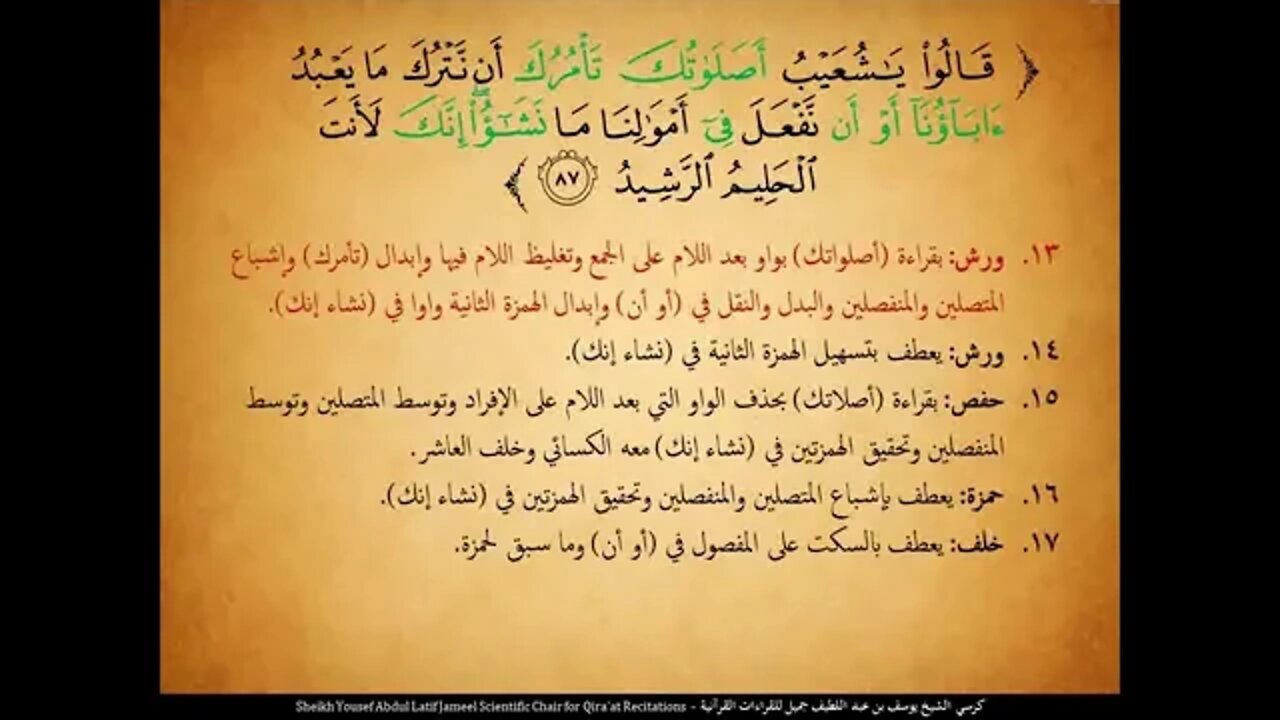 ﴿ قَالُوا۟ يَـٰشُعَيْبُ أَصَلَوَٰتُكَ تَأْمُرُكَ أَن نَّتْرُكَ مَا يَعْبُدُ
ءَابَآؤُنَآ أَوْ أَن نَّفْعَلَ فِىٓ أَمْوَٰلِنَا مَا نَشَـٰٓؤُا۟ ۖ إِنَّكَ لَأَنتَ
ٱلْحَلِيمُ ٱلرَّشِيدُ ٨٧ ﴾
١٣. ورش: بقراءة (أصلواتك) بواو بعد اللام على الجمع وتغليظ اللام فيها وإبدال (تأمرك) وإشباع
المتصلين والمنفصلين والبدل والنقل في (أو أن) وإبدال الهمزة الثانية واوا في (نشاء إنك).
١٤. ورش: يعطف بتسهيل الهمزة الثانية في (نشاء إنك).
١٥. حفص: بقراءة (أصلاتك) بحذف الواو التي بعد اللام على الإفراد وتوسط المتصلين وتوسط
المنفصلين وتحقيق الهمزتين في (نشاء إنك) معه الكسائي وخلف العاشر.
١٦. حمزة: يعطف بإشباع المتصلين والمنفصلين وتحقيق الهمزتين في (نشاء إنك).
١٧. خلف: يعطف بالسكت على المفصول في (أو أن) وما سبق لحمزة.
Sheikh Yousef Abdul Latif Jameel Scientific Chair for Qira'at Recitations - كرسي الشيخ يوسف بن عبد اللطيف جميل للقراءات القرآنية